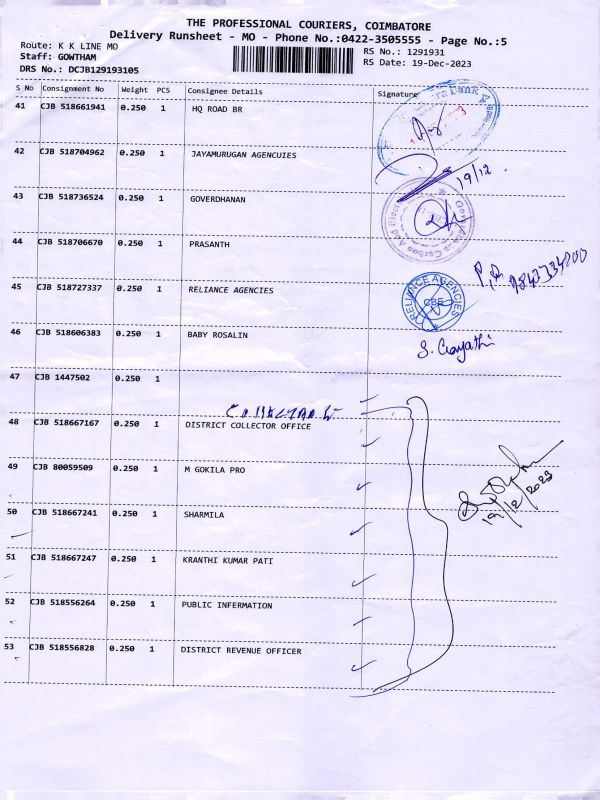 THE PROFESSIONAL COURIERS, COIMBATORE
Delivery Runsheet - MO - Phone No.:0422-3505555 - Page No.:5
Route: K K LINE MO
RS No.: 1291931
Staff: GOWTHAM
RS Date: 19-Dec-2023
DRS No.: DCJB129193105
S No Consignment No Weight PCS Consignee Details Signature
41 CJB 518661941 0.250 1 HQ ROAD BR
42 CJB 518704962 0.250 1 JAYAMURUGAN AGENCUIES
19/12
43 CJB 518736524 0.250 1 GOVERDHANAN
44 CJB 518706670 0.250 1 PRASANTH
45 CJB 518727337 0.250 1 RELIANCE AGENCIES
RELIANCE AGENCIES
CBE
46 CJB 518606383 0.250 1 BABY ROSALIN
S. Gayathi
47 CJB 1447502 0.250 1
48 CJB 518667167 0.250 1 DISTRICT COLLECTOR OFFICE
49 CJB 80059509 0.250 1 M GOKILA PRO
19/12/2023
50 CJB 518667241 0.250 1 SHARMILA
51 CJB 518667247 0.250 1 KRANTHI KUMAR PATI
52 CJB 518556264 0.250 1 PUBLIC INFERMATION
53 CJB 518556828 0.250 1 DISTRICT REVENUE OFFICER